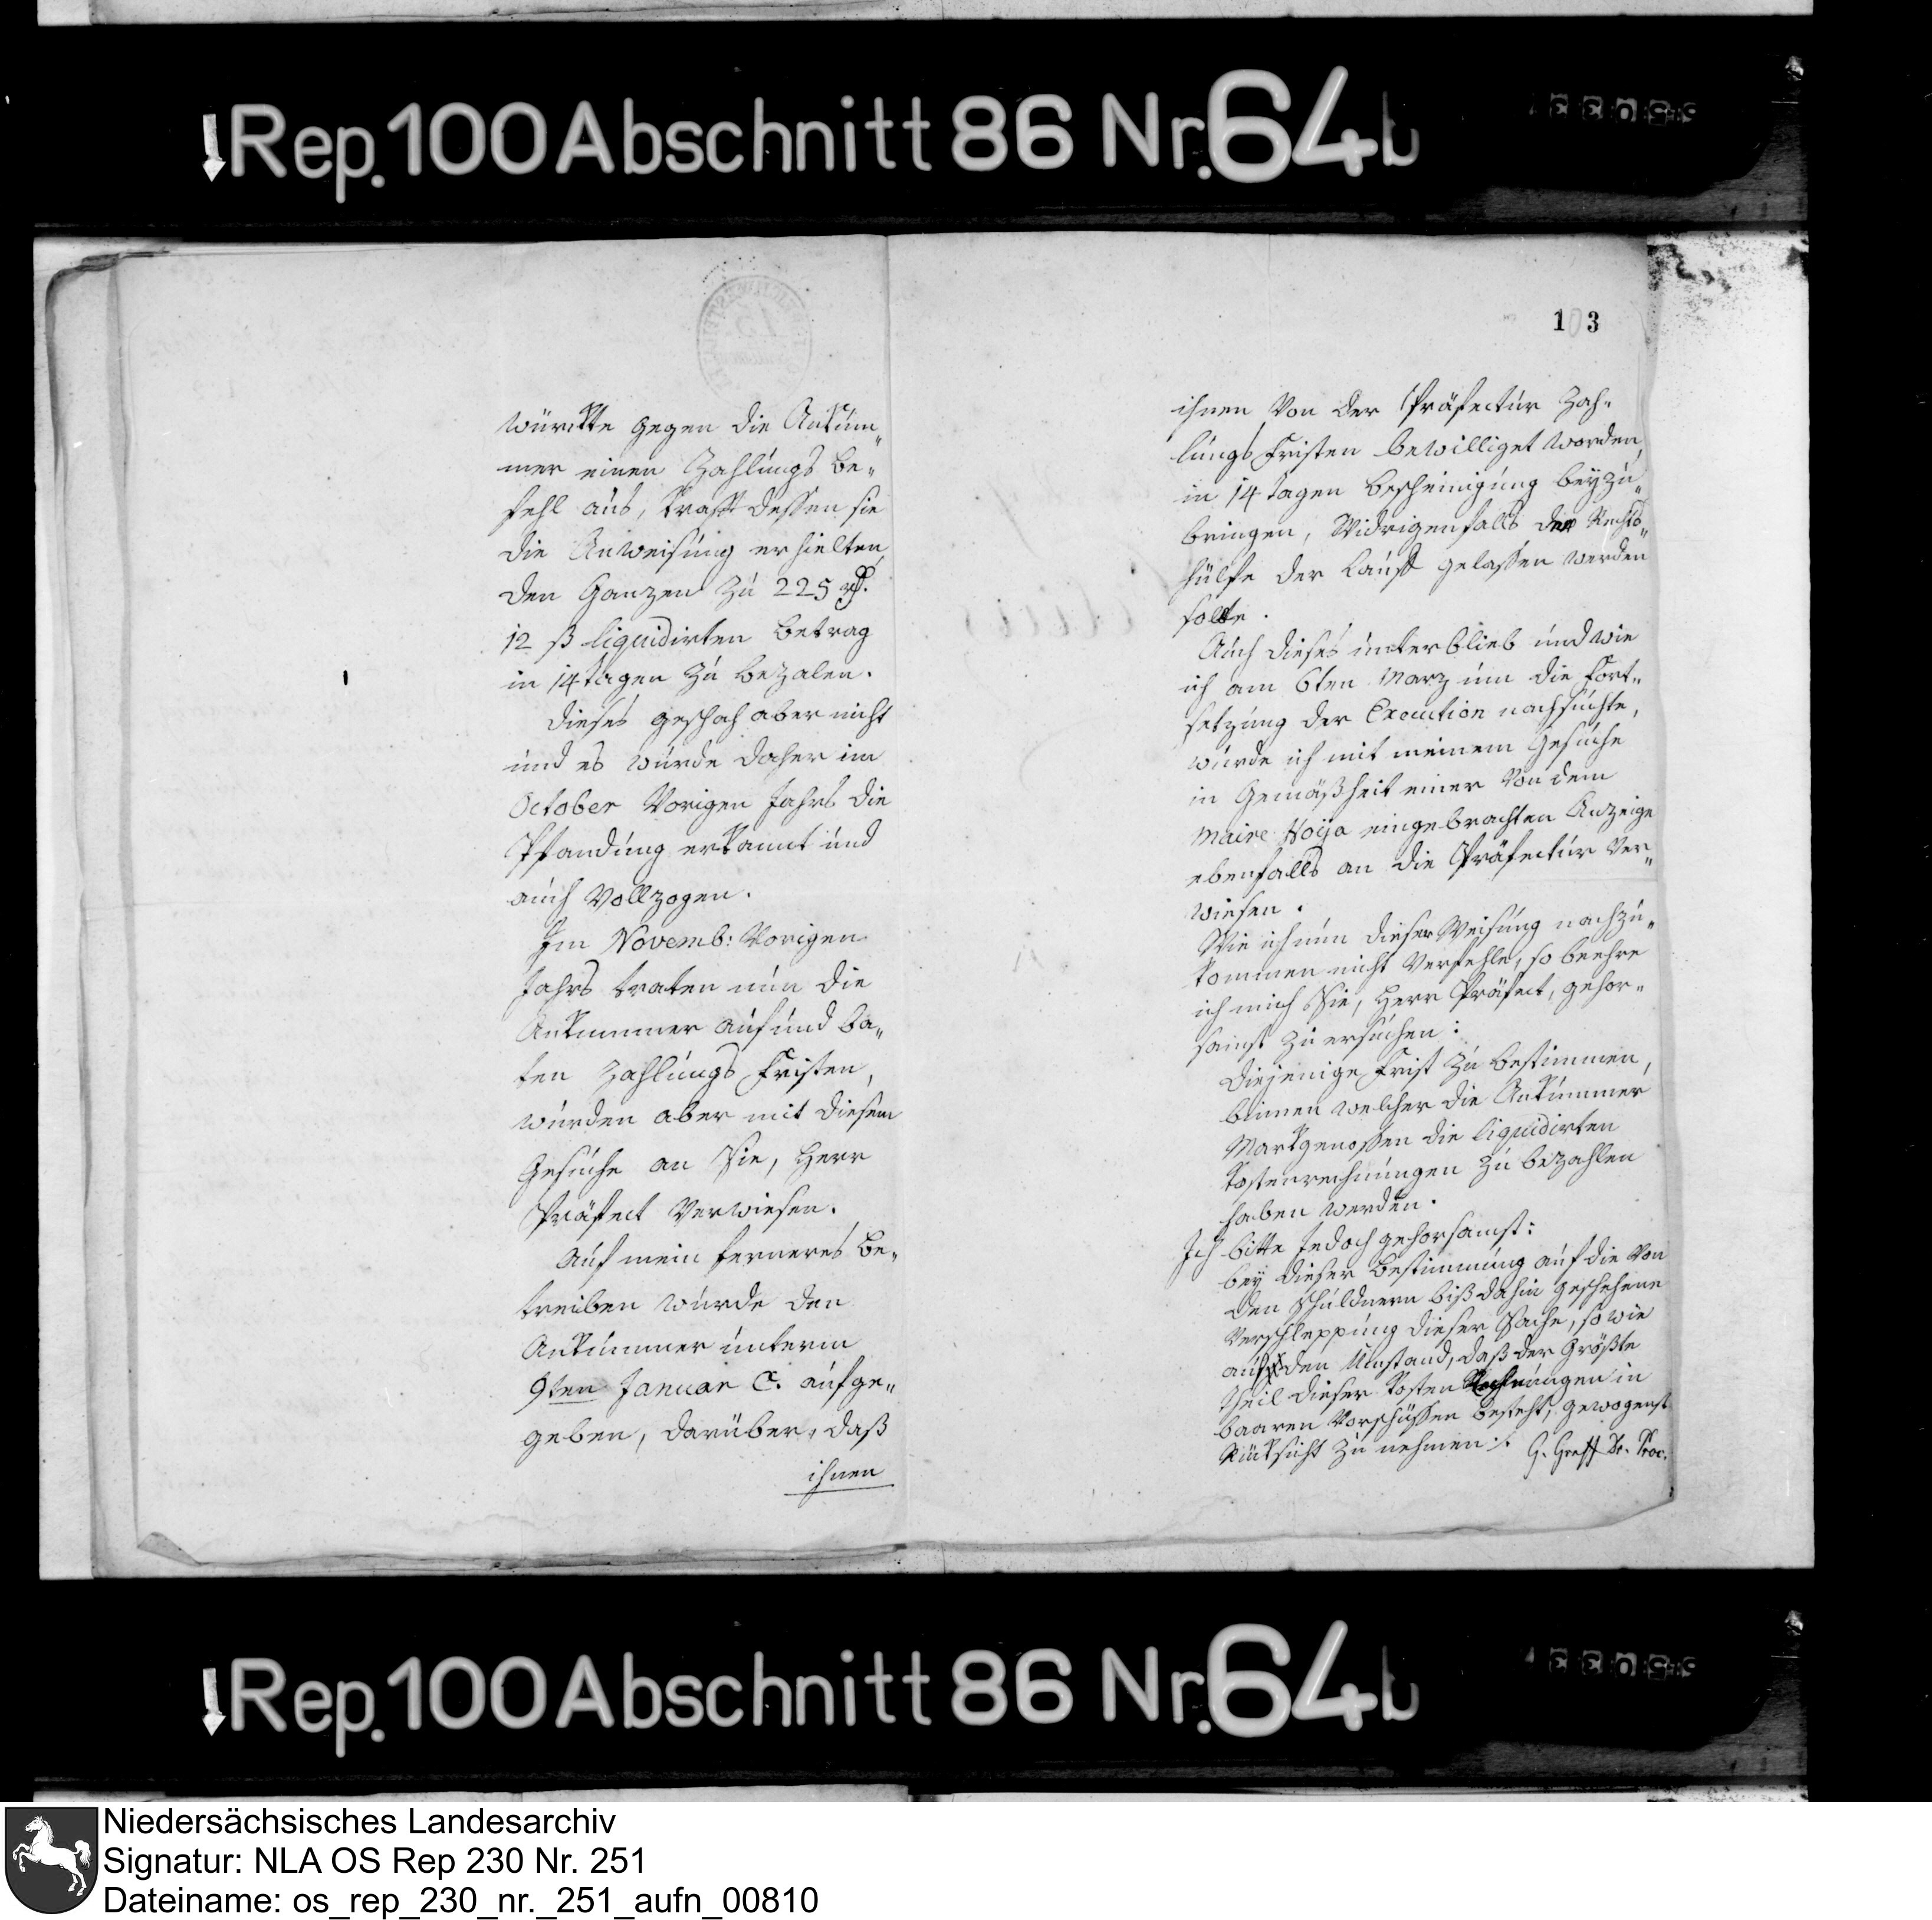 Rep. 100 Abschnitt 86 Nr. 64b
103
würckte gegen die Ankum„
mer einen Zahlungs be„
fehl aus, kraft dessen sie
die Anweisung erhielten,
den Ganzen zu 225 rth.
12 ß liquidirten Betrag
in 14 Tagen zu bezalen.
Dieses geschah aber nicht
und es wurde daher im
October vorigen Jahrs die
Pfandung erkannt und
auch vollzogen.
Im Novemb: vorigen
Jahrs traten nun die
Ankummer auf und ba„
ten Zahlungs Fristen,
wurden aber mit diesem
Gesuche an Sie, Herr
Präfect verwiesen.
Auf mein ferneres Be„
treiben wurde den
Ankummer unterm
9ten Januar C. aufge„
geben, darüber, daß
ihnen
ihnen von der Präfectur Zah„
lungs Fristen bewilliget worden,
in 14 Tagen Bescheinigung beyzu„
bringen, Widrigenfalls der Rechts„
hülfe der Lauf gelassen werden
solte.
Auch dieses unterblieb und wie
ich am 6ten Marz um die Fort„
setzung der Execution nachsuchte,
wurde ich mit meinem Gesuche
in Gemäßheit einer von dem
Maire Hoija eingebrachten Anzeige
ebenfalls an die Präfectur ver„
wiesen.
Wie ich nun dieser Weisung nachzu„
kommen nicht verfehle, so beehre
ich mich Sie, Herr Präfect, gehor„
samst zu ersuchen:
Diejenige Frist zu bestimmen,
binnen welcher die Ankummer
Markgenossen die liquidirten
Kostenrechnungen zu bezahlen
haben werden.
Ich bitte Jedoch gehorsamst:
bey dieser Bestimmung auf die von
den Schuldnern bis dahin geschehene
Verschleppung dieser Sache, so wie
auf den Umstand, daß der Größte
Theil dieser Kosten Rechnungen in
baaren Vorschüssen besteht, gewogenst
Rücksicht zu nehmen.
G. Greff Dr. Proc.
Rep. 100 Abschnitt 86 Nr. 64b
Niedersächsisches Landesarchiv
Signatur: NLA OS Rep 230 Nr. 251
Dateiname: os_rep_230_nr._251_aufn_00810